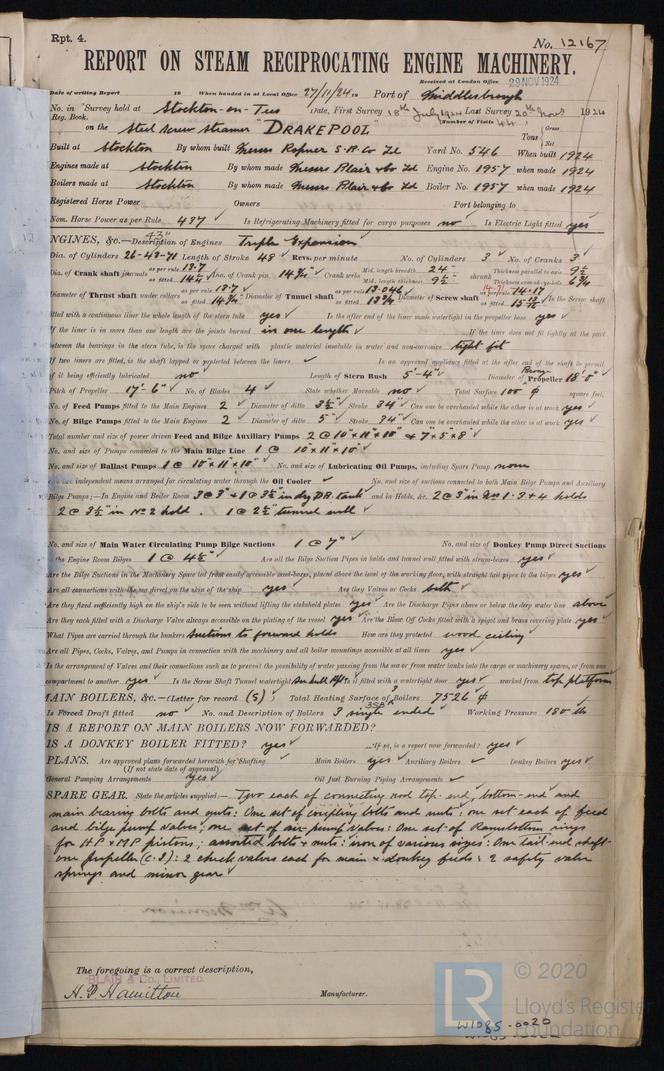 Rpt. 4.
No. 12167
REPORT ON STEAM RECIPROCATING ENGINE MACHINERY.
Received at London Office 29 NOV 1924
Date of writing Report 19 When handed in at Local Office 27/11/24 19 Port of Middlesbrough
No. in Survey held at Stockton-on-Tees Date, First Survey 18th July 1924 Last Survey 20th Nov 1924
Reg. Book. (Number of Visits 44)
on the Steel Screw Steamer "DRAKEPOOL" Tons Gross Net
Built at Stockton By whom built Messrs Ropner S. B. Co Ld Yard No. 546 When built 1924
Engines made at Stockton By whom made Messrs Blair & Co Ld Engine No. 1957 when made 1924
Boilers made at Stockton By whom made Messrs Blair & Co Ld Boiler No. 1957 when made 1924
Registered Horse Power Owners Port belonging to
Nom. Horse Power as per Rule 437 Is Refrigerating Machinery fitted for cargo purposes no Is Electric Light fitted yes
NGINES, &c.—Description of Engines Triple Expansion
Dia. of Cylinders 26-43-71 Length of Stroke 48 Revs. per minute No. of Cylinders 3 No. of Cranks 3
Dia. of Crank shaft journals as per rule 13.7 as fitted 14¼ Dia. of Crank pin 14¼" Crank webs Mid. length breadth 24 Mid. length thickness 9½ shrunk Thickness parallel to axis 9½ Thickness around eye-hole 6¾
Diameter of Thrust shaft under collars as per rule 13.7 as fitted 14¼" Diameter of Tunnel shaft as per rule 13.046 as fitted Diameter of Screw shaft as per rule 14.17 as fitted Is the Screw shaft
fitted with a continuous liner the whole length of the stern tube yes Is the after end of the liner made watertight in the propeller boss yes
If the liner is in more than one length are the joints burned in one length If the liner does not fit tightly at the part
between the bearings in the stern tube, is the space charged with plastic material insoluble in water and non-corrosive tight fit
If two liners are fitted, is the shaft lapped or protected between the liners ✓ Is an approved appliance fitted at the after end of the shaft to permit
of it being efficiently lubricated no Length of Stern Bush 5'-4" Diameter of Propeller 18'-0"
Pitch of Propeller 17'-6" No. of Blades 4 State whether Moveable no Total Surface 100 square feet.
No. of Feed Pumps fitted to the Main Engines 2 Diameter of ditto 3½" Stroke 34" Can one be overhauled while the other is at work yes
No. of Bilge Pumps fitted to the Main Engines 2 Diameter of ditto 5" Stroke 34" Can one be overhauled while the other is at work yes
Total number and size of power driven Feed and Bilge Auxiliary Pumps 2 @ 10" x 11" x 10" & 7" x 5" x 8"
No. and size of Pumps connected to the Main Bilge Line 1 @ 10" x 11" x 10"
No. and size of Ballast Pumps 1 @ 10" x 11" x 10" No. and size of Lubricating Oil Pumps, including Spare Pump none
two independent means arranged for circulating water through the Oil Cooler ✓ No. and size of suctions connected to both Main Bilge Pumps and Auxiliary
Bilge Pumps;—In Engine and Boiler Room 3 @ 3" & 1 @ 3½" in dry D.B. tank and in Holds, &c. 2 @ 3" in Nos 1.3 & 4 holds
2 @ 3½" in No 2 hold. 1 @ 2½" tunnel well
No. and size of Main Water Circulating Pump Bilge Suctions 1 @ 7" No. and size of Donkey Pump Direct Suctions
the Engine Room Bilges 1 @ 4½" Are all the Bilge Suction Pipes in holds and tunnel well fitted with strum-boxes yes
Are the Bilge Suctions in the Machinery Space led from easily accessible mud-boxes, placed above the level of the working floor, with straight tail pipes to the bilges yes
Are all connections with the sea direct on the skin of the ship yes Are they Valves or Cocks both
Are they fixed sufficiently high on the ship's side to be seen without lifting the stokehold plates yes Are the Discharge Pipes above or below the deep water line above
Are they each fitted with a Discharge Valve always accessible on the plating of the vessel yes Are the Blow Off Cocks fitted with a spigot and brass covering plate yes
What Pipes are carried through the bunkers Suctions to forward holds How are they protected wood ceiling
Are all Pipes, Cocks, Valves, and Pumps in connection with the machinery and all boiler mountings accessible at all times yes
Is the arrangement of Valves and their connections such as to prevent the possibility of water passing from the sea or from water tanks into the cargo or machinery spaces, or from one
compartment to another yes Is the Screw Shaft Tunnel watertight is it fitted with a watertight door yes worked from top platform
MAIN BOILERS, &c.—(Letter for record (S)) Total Heating Surface of Boilers 7526
Is Forced Draft fitted no No. and Description of Boilers 3 single ended Working Pressure 180 lb
IS A REPORT ON MAIN BOILERS NOW FORWARDED?
IS A DONKEY BOILER FITTED? yes If so, is a report now forwarded? yes
PLANS. Are approved plans forwarded herewith for Shafting ✓ Main Boilers yes Auxiliary Boilers ✓ Donkey Boilers yes
(If not state date of approval)
General Pumping Arrangements yes Oil fuel Burning Piping Arrangements ✓
SPARE GEAR. State the articles supplied:— Two each of connecting rod top-end, bottom-end and
main bearing bolts and nuts: One set of coupling bolts and nuts: one set each of feed
and bilge pump valves; one set of air-pump valves: One set of Ramsbottom rings
for HP & MP pistons; assorted bolts & nuts: iron of various sizes: One tail-end shaft
one propeller (C.I): 2 check valves each for main & donkey feeds: 2 safety valve
springs and minor gear
The foregoing is a correct description,
BLAIR & CO., LIMITED.
H. B. Hamilton Manufacturer.
LR © 2020
Lloyd's Register
Foundation
W1085-0020